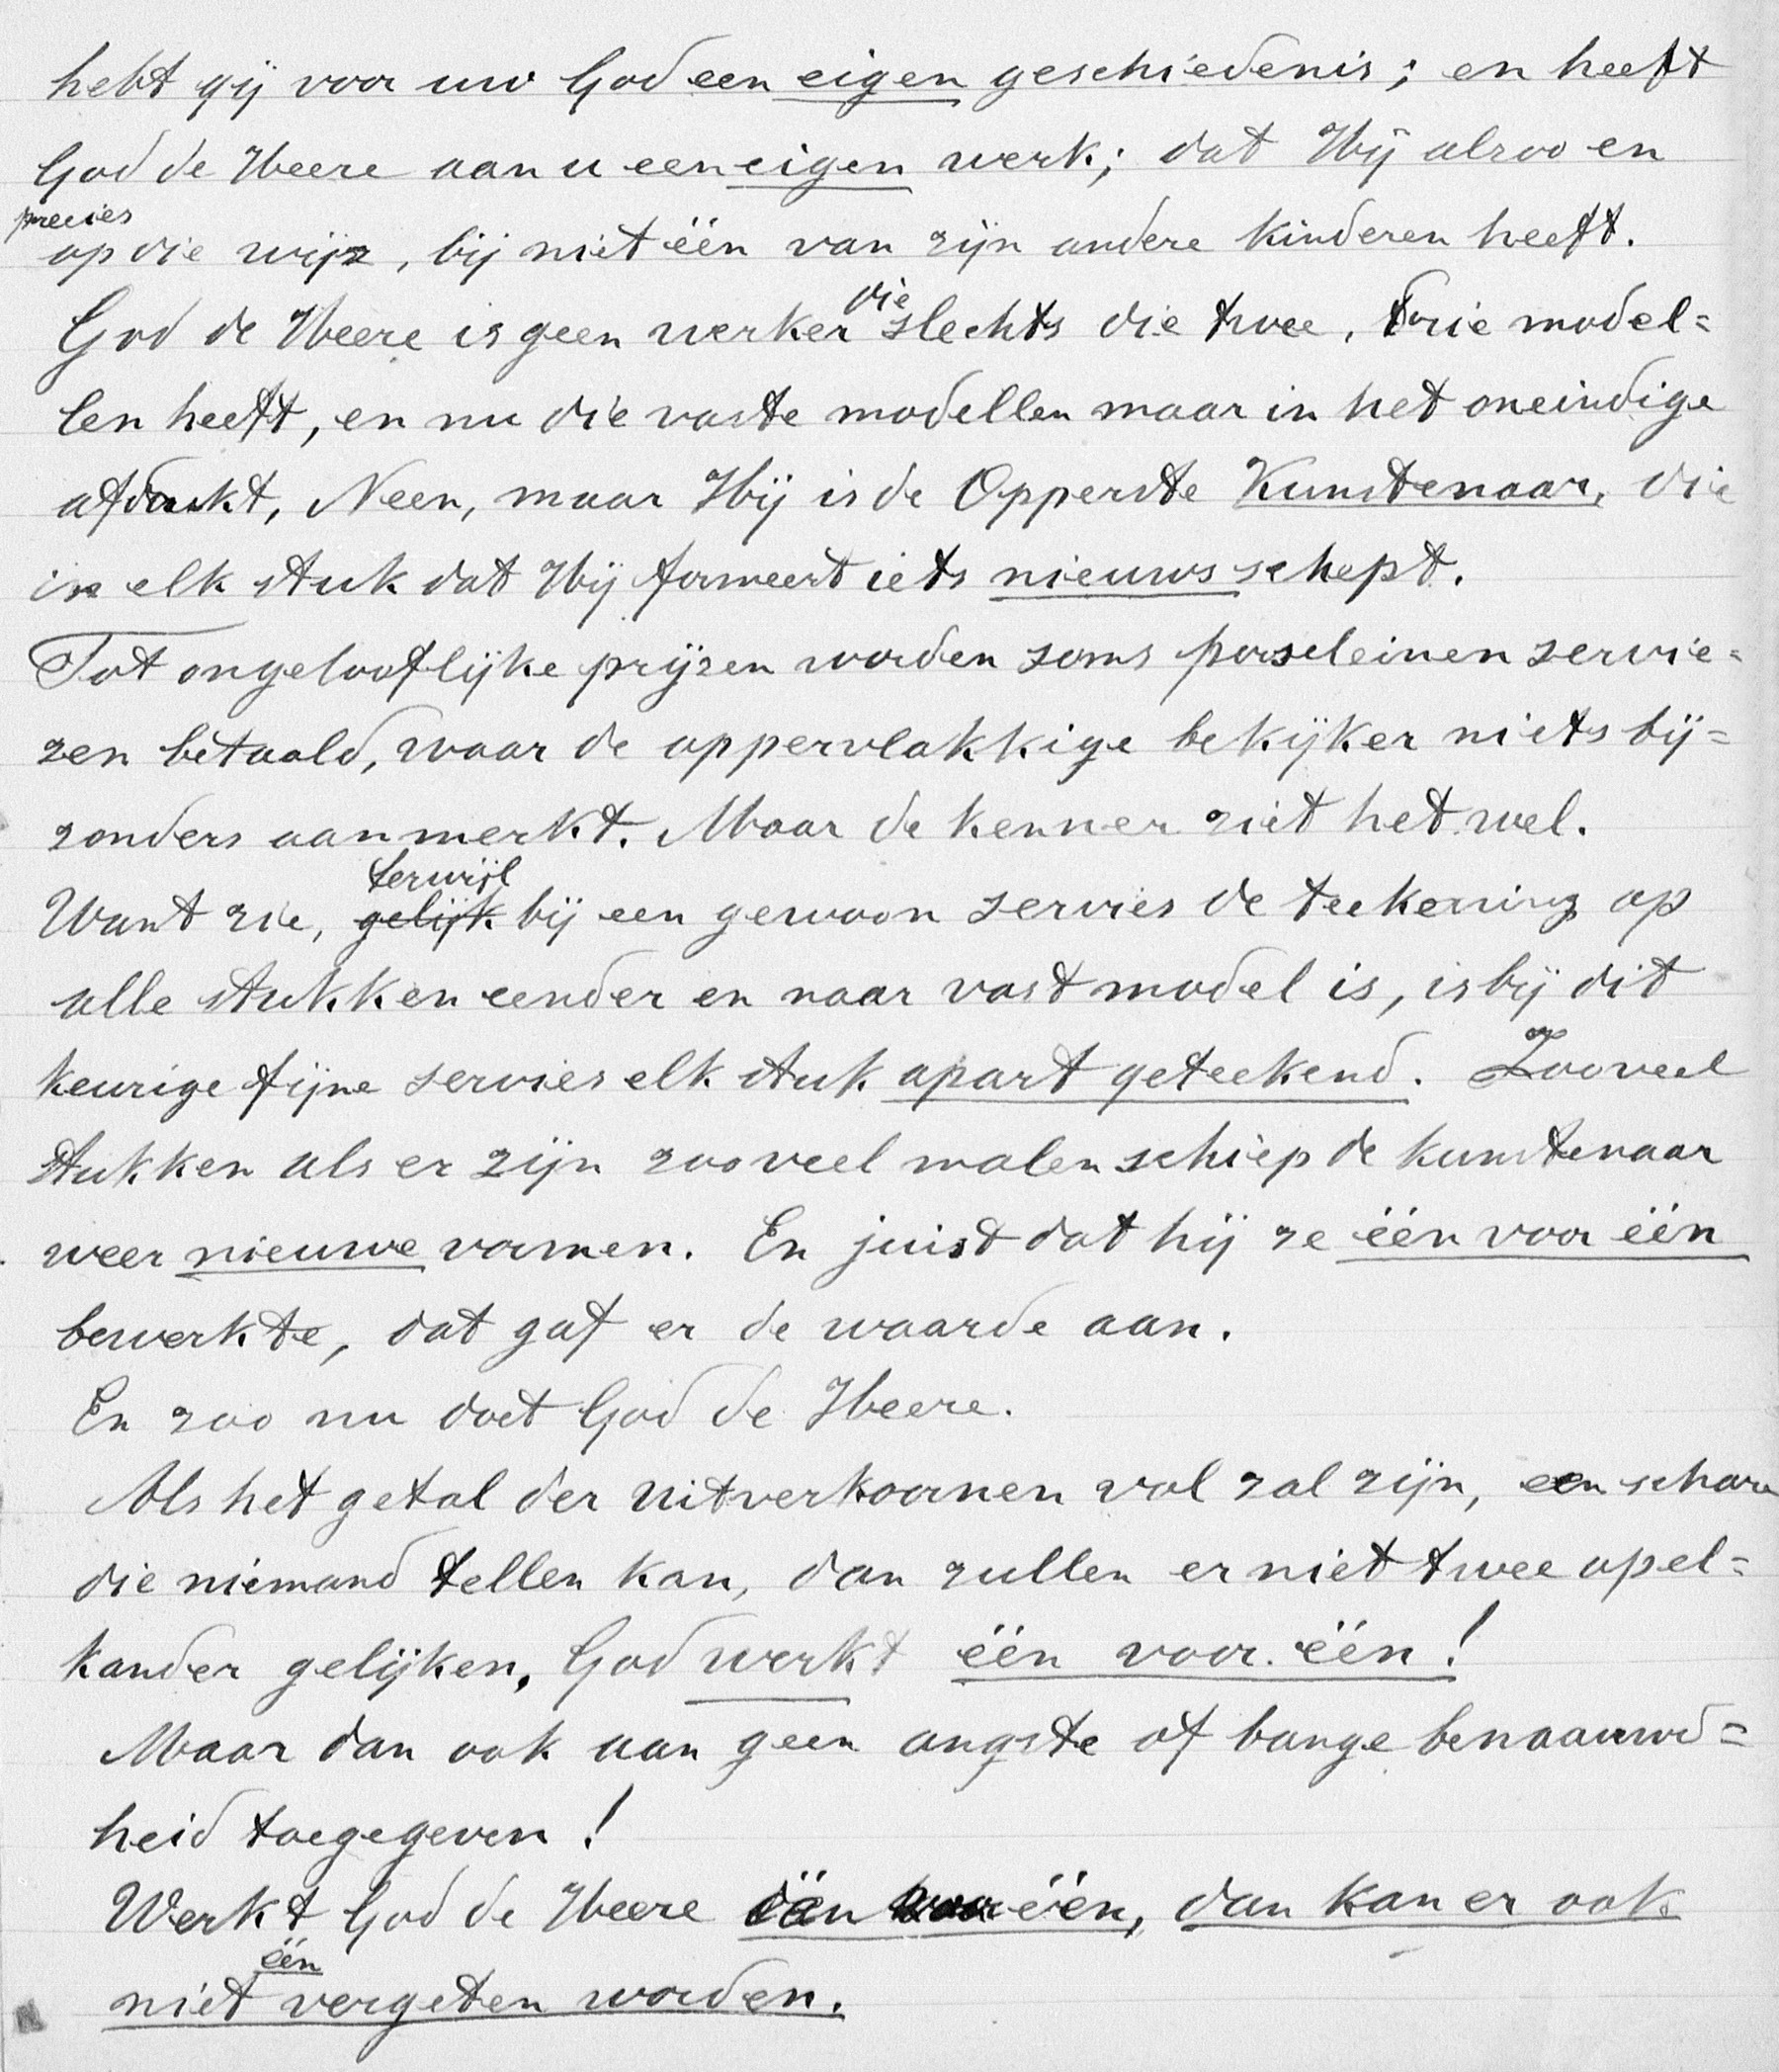 hebt gij voor uw God een eigen geschiedenis; en heeft
God de Heere aan u een eigen werk; dat Hij alzoo en
precies
op die wijz, bij niet één van zijn andere kinderen heeft.
die
God de Heere is geen werker slechts die twee, drie model=
len heeft, en nu die vaste modellen maar in het oneindige
afdrukt, Neen, maar Hij is de Opperste Kunstenaar, die
in elk stuk dat Hij formeert iets nieuws schept.
Tot ongelooflijke prijzen worden soms porseleinen servie=
zen betaald, waar de oppervlakkige bekijker niets bij=
zonders aan merkt. Maar de kenner ziet het wel.
terwijl
Want zie, gelijk bij een gewoon servies de teekening op
alle stukken eender en naar vast model is, is bij dit
keurige fijne servies elk stuk apart geteekend. Zooveel
stukken als er zijn zooveel malen schiep de kunstenaar
weer nieuwe vormen. En juist dat hij ze één voor één
bewerkte, dat gaf er de waarde aan.
En zoo nu doet God de Heere.
Als het getal der uitverkoornen vol zal zijn, een schare
die niemand tellen kan, dan zullen er niet twee op el=
kander gelijken, God werkt één voor één!
Maar dan ook aan geen angste of bange benaauwd=
heid toegegeven!
Werkt God de Heere één voor één, dan kan er ook
één
niet vergeten worden.